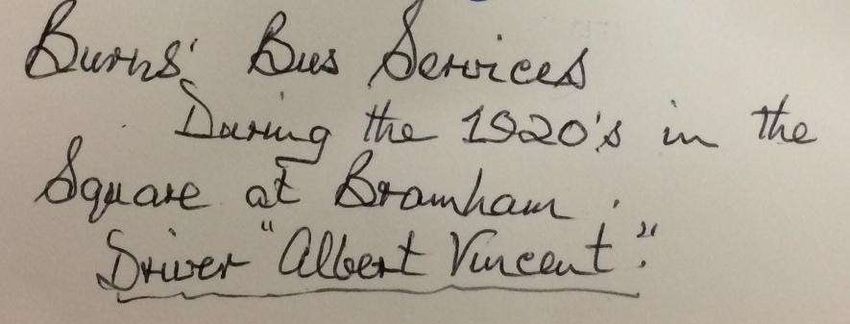 Burns' Bus Services
During the 1920's in the
Square at Bramham.
Driver "Albert Vincent".